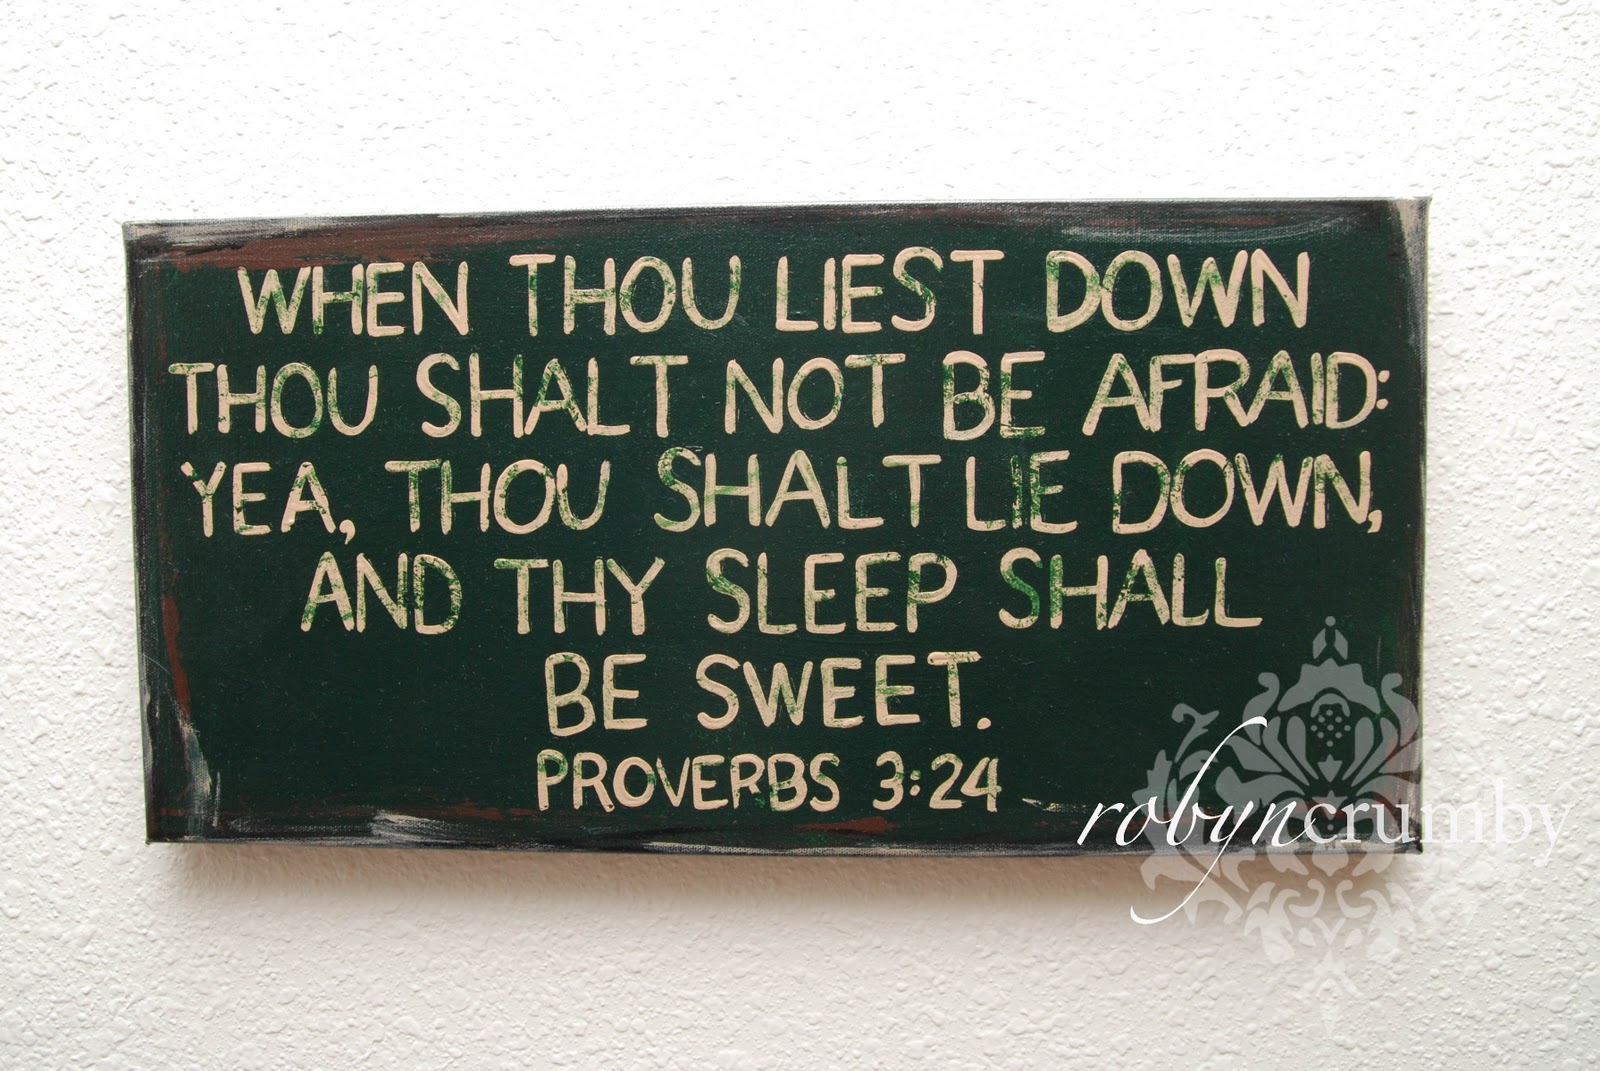 WHEN THOU LIEST DOWN
THOU SHALT NOT BE AFRAID:
YEA, THOU SHALT LIE DOWN,
AND THY SLEEP SHALL
BE SWEET.
PROVERBS 3:24
robyncrumby